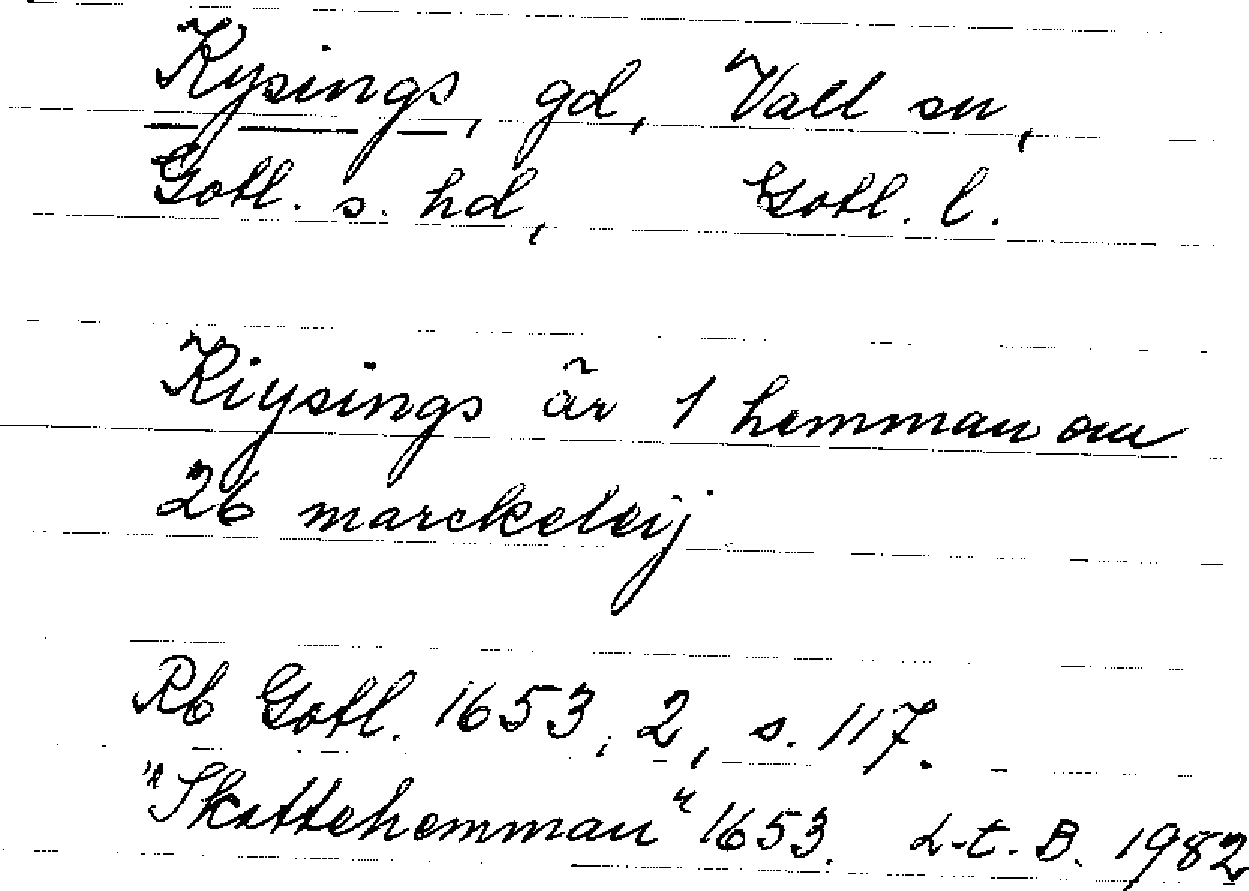 Kysings, gd, Vall sn,
Gotl. s. hd, Gotl. l.
Kiysings är 1 hemman om
26 marckeleij
Rb Gotl. 1653, 2, s. 117.
"Skattehemman" 1653. L-t. B. 1982